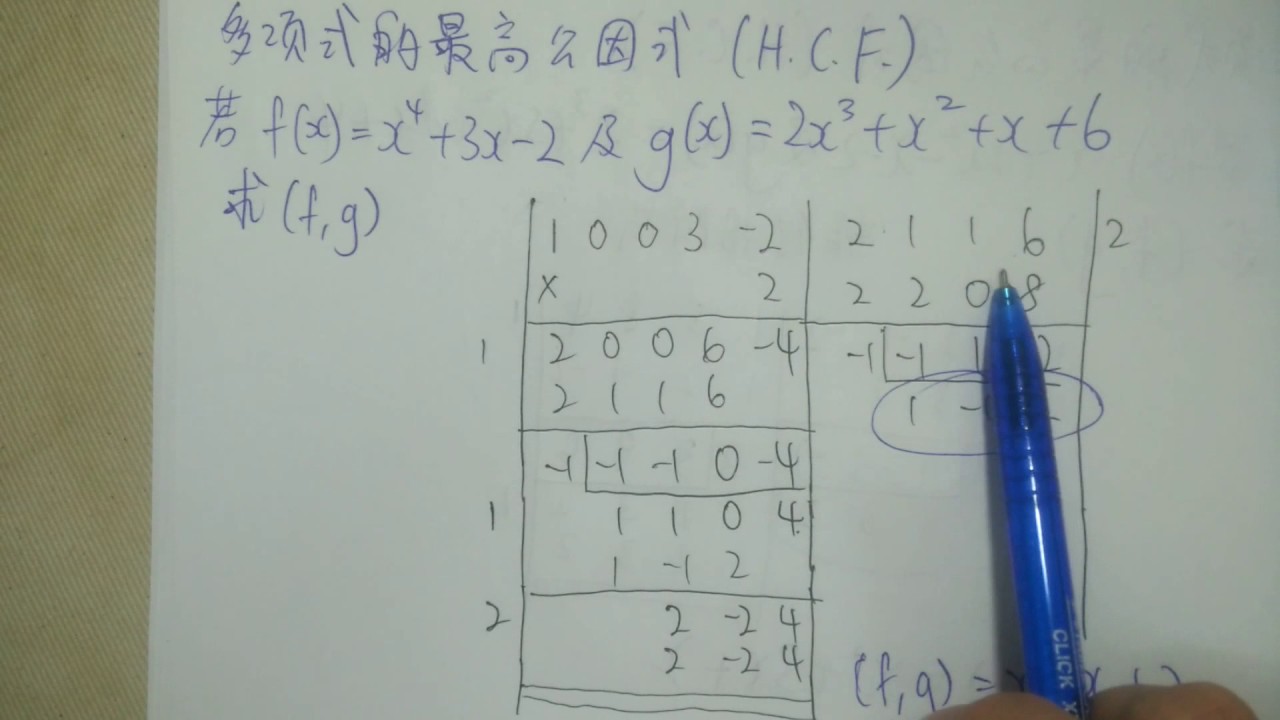 多项式的最高公因式 (H.C.F.)
若 f(x)=x⁴+3x-2 及 g(x)=2x³+x²+x+6
求(f,g)
1 0 0 3 -2 2 1 1 6 2
x 2 2 2 0 8
1 2 0 0 6 -4 -1 -1 1 2
2 1 1 6 1
-1 -1 -1 0 -4
1 1 1 0 4
1 -1 2
2 2 -2 4
2 -2 4
(f,g) =
CLICK